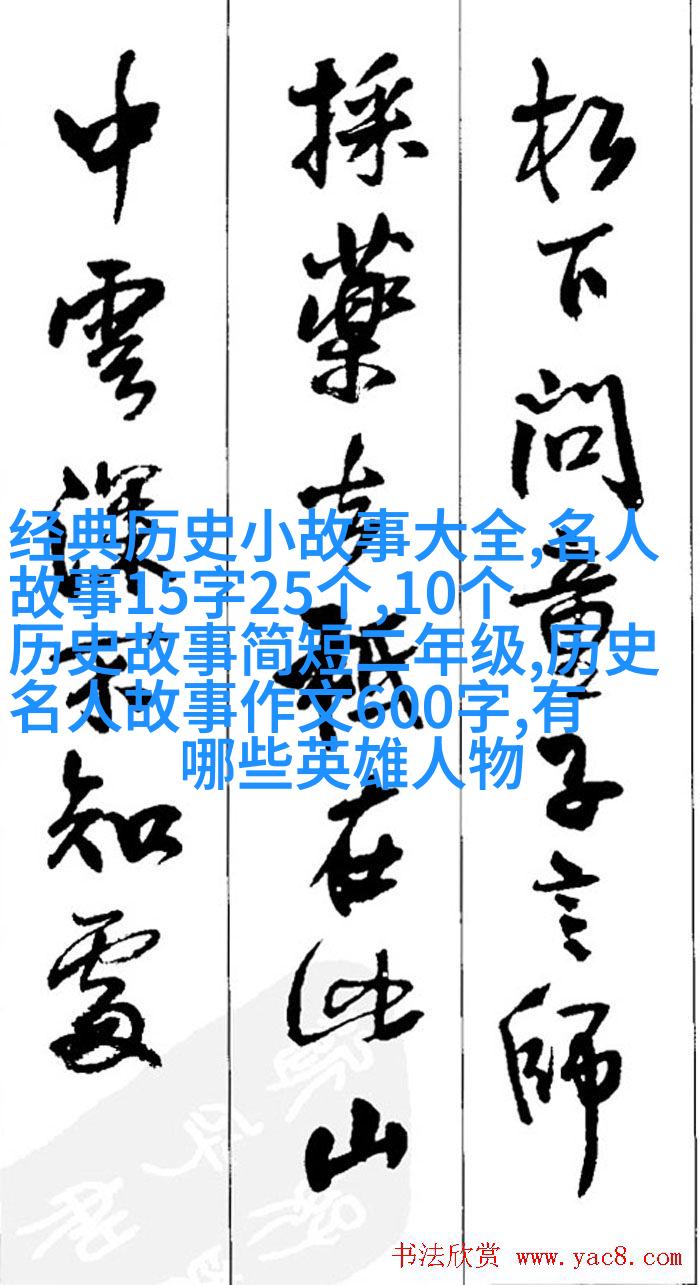 松下問童子言師
採藥去在此山
中雲深不知處
经典历史小故事大全,名人
故事15字25个,10个
历史故事简短二年级,历史
名人故事作文600字,有
哪些英雄人物
书法欣赏 www.yac8.com